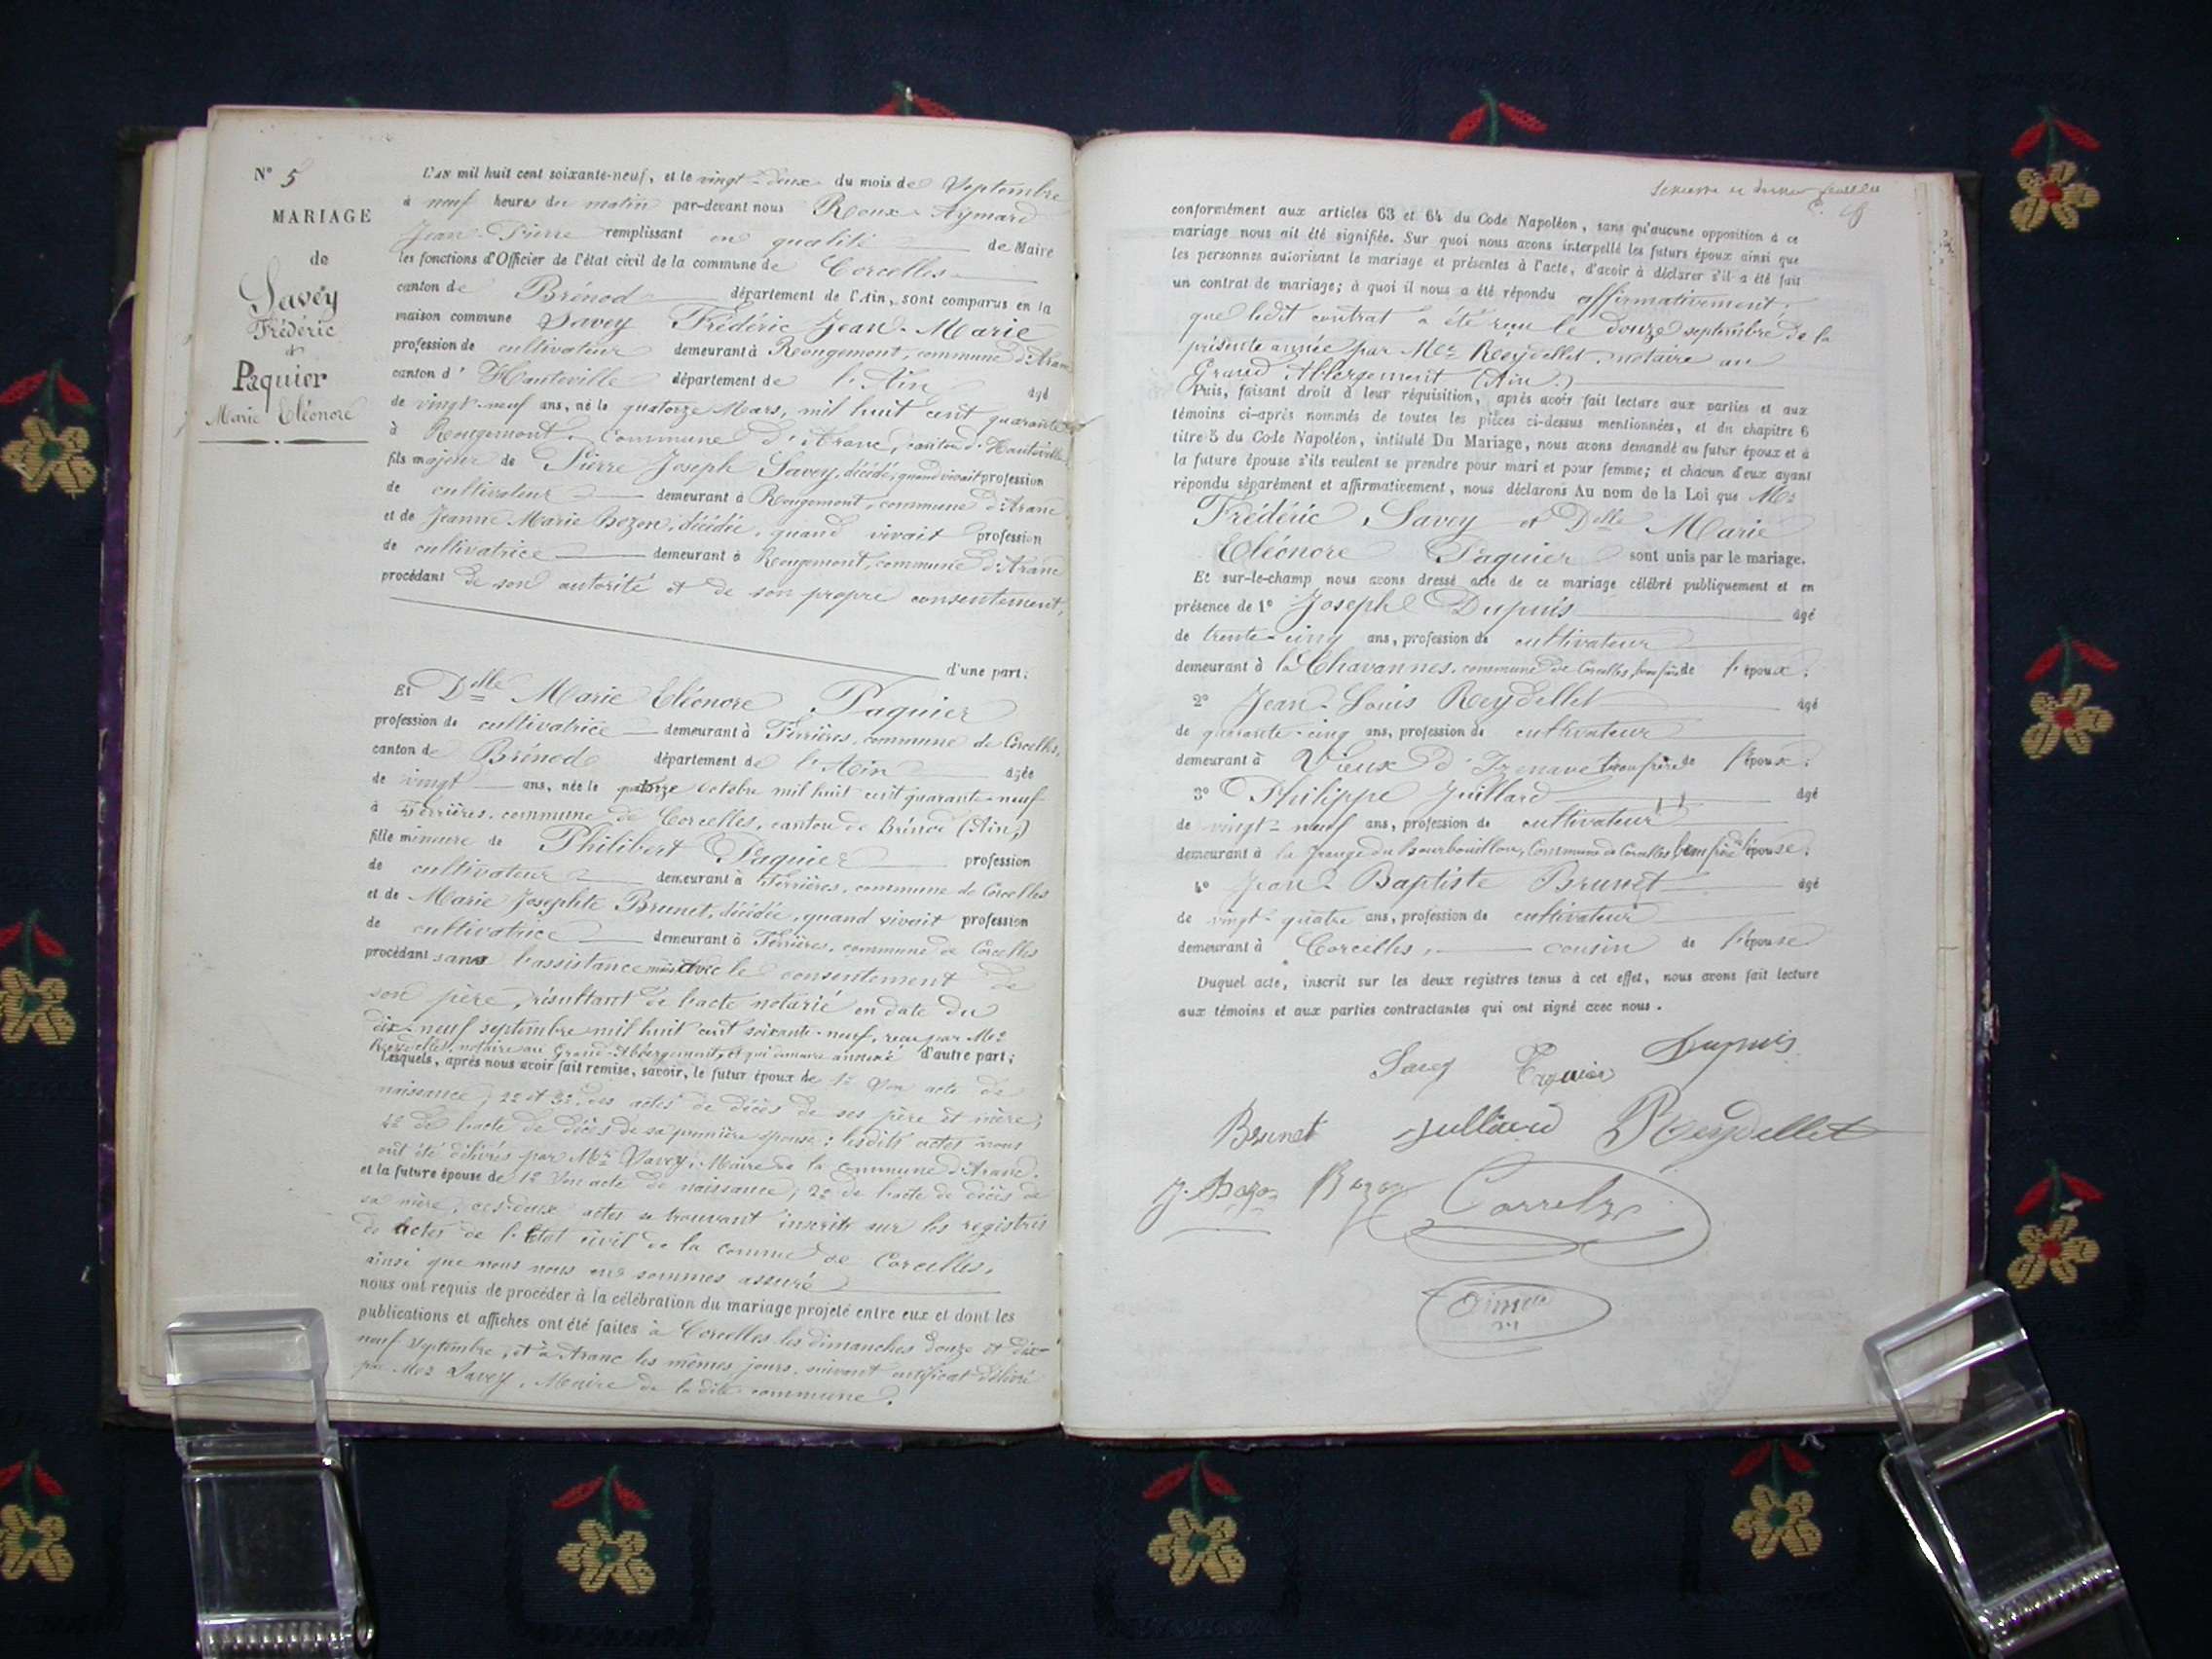 N° 5
MARIAGE
de
Savey
Frédéric
et
Paquier
Marie Eléonore
L'AN mil huit cent soixante-neuf, et le vingt-deux du mois de Septembre
à neuf heures du matin par-devant nous Roux-Aymard
Jean-Pierre remplissant en qualité de Maire
les fonctions d'Officier de l'état civil de la commune de Corcelles
canton de Brénod département de l'Ain, sont comparus en la
maison commune Savey Frédéric Jean-Marie
profession de cultivateur demeurant à Rougemont, commune d'Aranc
canton d'Hauteville département de l'Ain âgé
de vingt-neuf ans, né le quatorze Mars, mil huit cent quarante
à Rougemont, commune d'Aranc, canton d'Hauteville,
fils majeur de Pierre Joseph Savey, décédé, quand vivait profession
de cultivateur demeurant à Rougemont, commune d'Aranc,
et de Jeanne Marie Bozon, décédée, quand vivait profession
de cultivatrice demeurant à Rougemont, commune d'Aranc
procédant de son autorité et de son propre consentement,
d'une part;
Et Delle Marie Eléonore Paquier
profession de cultivatrice demeurant à Ferrières, commune de Corcelles,
canton de Brénod département de l'Ain âgée
de vingt ans, née le quatorze Octobre mil huit cent quarante-neuf
à Ferrières, commune de Corcelles, canton de Brénod (Ain,)
fille mineure de Philibert Paquier profession
de cultivateur demeurant à Ferrières, commune de Corcelles
et de Marie Josephte Brunet, décédée, quand vivait profession
de cultivatrice demeurant à Ferrières, commune de Corcelles
procédant sans l'assistance mais avec le consentement de
son père, résultant de l'acte notarié en date du
dix-neuf septembre mil huit cent soixante-neuf, reçu par Me
Reydellet, notaire au Grand-Abergement, et qui demeure annexé d'autre part;
Lesquels, après nous avoir fait remise, savoir, le futur époux de 1° Son acte de
naissance; 2° et 3° des actes de décès de ses père et mère;
4° de l'acte de décès de sa première épouse: lesdits actes nous
ont été délivrés par Mr Savey, Maire de la commune d'Aranc.
et la future épouse de 1° Son acte de naissance; 2° de l'acte de décès de
sa mère, ces deux actes se trouvant inscrits sur les registres
de actes de l'Etat civil de la comme de Corcelles,
ainsi que nous nous en sommes assuré
nous ont requis de procéder à la célébration du mariage projeté entre eux et dont les
publications et affiches ont été faites à Corcelles les dimanches douze et dix-
neuf septembre, et à Aranc les mêmes jours, suivant certificat délivré
par Mr Savey, Maire de la dite commune.
conformément aux articles 63 et 64 du Code Napoléon, sans qu'aucune opposition à ce
mariage nous ait été signifiée. Sur quoi nous avons interpellé les futurs époux ainsi que
les personnes autorisant le mariage et présentes à l'acte, d'avoir à déclarer s'il a été fait
un contrat de mariage; à quoi il nous a été répondu affirmativement,
que ledit contrat a été reçu le douze septembre de la
présente année par Me Reydellet notaire au
Grand Abergement (Ain.)
Puis, faisant droit à leur réquisition, après avoir fait lecture aux parties et aux
témoins ci-après nommés de toutes les pièces ci-dessus mentionnées, et du chapitre 6
titre 5 du Code Napoléon, intitulé Du Mariage, nous avons demandé au futur époux et à
la future épouse s'ils veulent se prendre pour mari et pour femme; et chacun d'eux ayant
répondu séparément et affirmativement, nous déclarons Au nom de la Loi que Mr
Frédéric Savey et Delle Marie
Eléonore Paquier sont unis par le mariage.
Et sur-le-champ nous avons dressé acte de ce mariage célébré publiquement et en
présence de 1° Joseph Dupuis âgé
de trente-cinq ans, profession de cultivateur
demeurant à la Chavannes, commune de Corcelles, beau frère de l'époux.
2° Jean-Louis Reydellet âgé
de quarante-cinq ans, profession de cultivateur
demeurant à Vieux d'Izenave beau frère de l'époux.
3° Philippe Juillard âgé
de vingt-neuf ans, profession de cultivateur
demeurant à la Grange du Bourbouillon, Commune de Corcelles beau frère de l'épouse.
4° Jean-Baptiste Brunet âgé
de vingt-quatre ans, profession de cultivateur
demeurant à Corcelles, cousin de l'épouse
Duquel acte, inscrit sur les deux registres tenus à cet effet, nous avons fait lecture
aux témoins et aux parties contractantes qui ont signé avec nous.
Savey Paquier Dupuis
Brunet Julliard Reydellet
J. Bozon Bozon